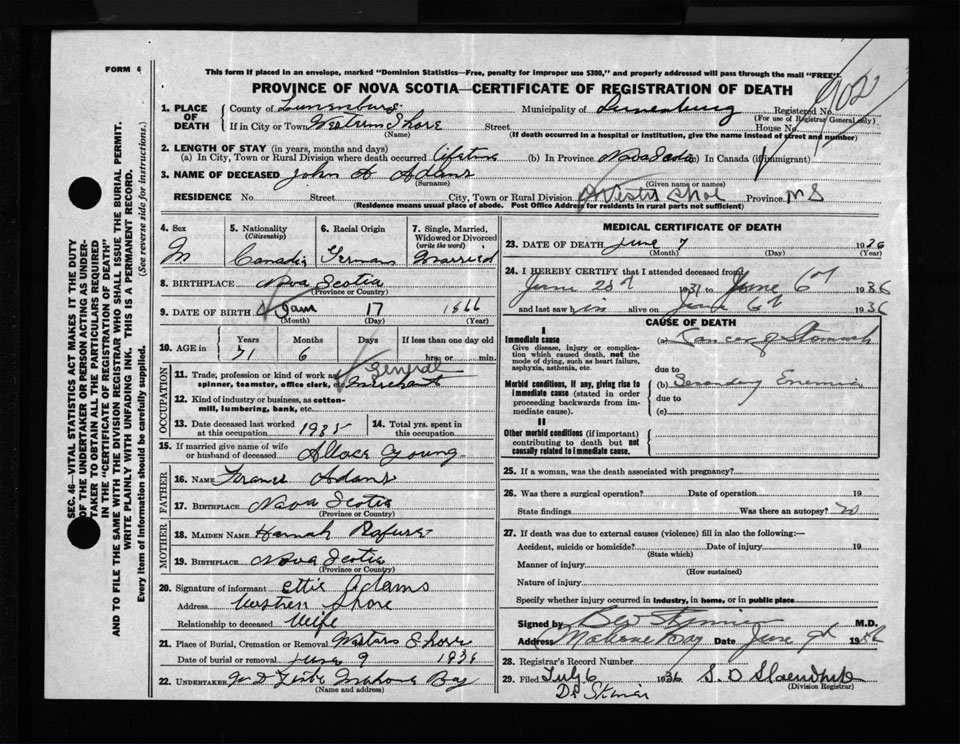 FORM 6
This form if placed in an envelope, marked "Dominion Statistics—Free, penalty for improper use $300," and properly addressed will pass through the mail "FREE"
PROVINCE OF NOVA SCOTIA—CERTIFICATE OF REGISTRATION OF DEATH
1. PLACE OF DEATH
County of Lunenburg Municipality of Lunenburg Registered No.
(For use of Registrar General only)
If in City or Town Western Shore Street House No.
(Name) (If death occurred in a hospital or institution, give the name instead of street and number)
2. LENGTH OF STAY (in years, months and days)
(a) In City, Town or Rural Division where death occurred lifetime (b) In Province Nova Scotia In Canada (if immigrant)
3. NAME OF DECEASED John A Adams
(Surname) (Given name or names)
RESIDENCE No. Street City, Town or Rural Division Western Shore Province N S
(Residence means usual place of abode. Post Office Address for residents in rural parts not sufficient)
4. Sex M
5. Nationality (Citizenship) Canadian
6. Racial Origin German
7. Single, Married, Widowed or Divorced (write the word) Married
8. BIRTHPLACE Nova Scotia
(Province or Country)
9. DATE OF BIRTH Jan 17 1866
(Month) (Day) (Year)
10. AGE in Years Months Days If less than one day old
71 6 hrs. or min.
OCCUPATION
11. Trade, profession or kind of work as spinner, teamster, office clerk, etc. General Merchant
12. Kind of industry or business, as cotton-mill, lumbering, bank, etc.
13. Date deceased last worked at this occupation 1935
14. Total yrs. spent in this occupation.
15. If married give name of wife or husband of deceased Young
FATHER
16. NAME Adams
17. BIRTHPLACE Nova Scotia
(Province or Country)
MOTHER
18. MAIDEN NAME Hannah Rafuse
19. BIRTHPLACE Nova Scotia
(Province or Country)
20. Signature of informant Ettie Adams
Address Western Shore
Relationship to deceased Wife
21. Place of Burial, Cremation or Removal Western Shore
Date of burial or removal June 9 1936
22. UNDERTAKER Mahone Bay
(Name and address)
MEDICAL CERTIFICATE OF DEATH
23. DATE OF DEATH June 7 1936
(Month) (Day) (Year)
24. I HEREBY CERTIFY that I attended deceased from
June 1936
and last saw him alive on 6th 1936
CAUSE OF DEATH
I
Immediate cause
Give disease, injury or complication which caused death, not the mode of dying, such as heart failure, asphyxia, asthenia, etc.
(a) Cancer of Stomach
due to
Morbid conditions, if any, giving rise to immediate cause (stated in order proceeding backwards from immediate cause).
(b) Secondary
due to
(c)
II
Other morbid conditions (if important) contributing to death but not causally related to immediate cause.
25. If a woman, was the death associated with pregnancy?
26. Was there a surgical operation? Date of operation 19
State findings Was there an autopsy? no
27. If death was due to external causes (violence) fill in also the following:—
Accident, suicide or homicide? Date of injury 19
(State which)
Manner of injury
(How sustained)
Nature of injury
Specify whether injury occurred in industry, in home, or in public place
Signed by M.D.
Address Mahone Bay Date June 1936
28. Registrar's Record Number
29. Filed July 6 1936 S. D
(Division Registrar)
SEC. 46—VITAL STATISTICS ACT MAKES IT THE DUTY
OF THE UNDERTAKER OR PERSON ACTING AS UNDER-
TAKER TO OBTAIN ALL THE PARTICULARS REQUIRED
IN THE "CERTIFICATE OF REGISTRATION OF DEATH"
AND TO FILE THE SAME WITH THE DIVISION REGISTRAR WHO SHALL ISSUE THE BURIAL PERMIT.
WRITE PLAINLY WITH UNFADING INK. THIS IS A PERMANENT RECORD.
Every item of information should be carefully supplied. (See reverse side for instructions.)